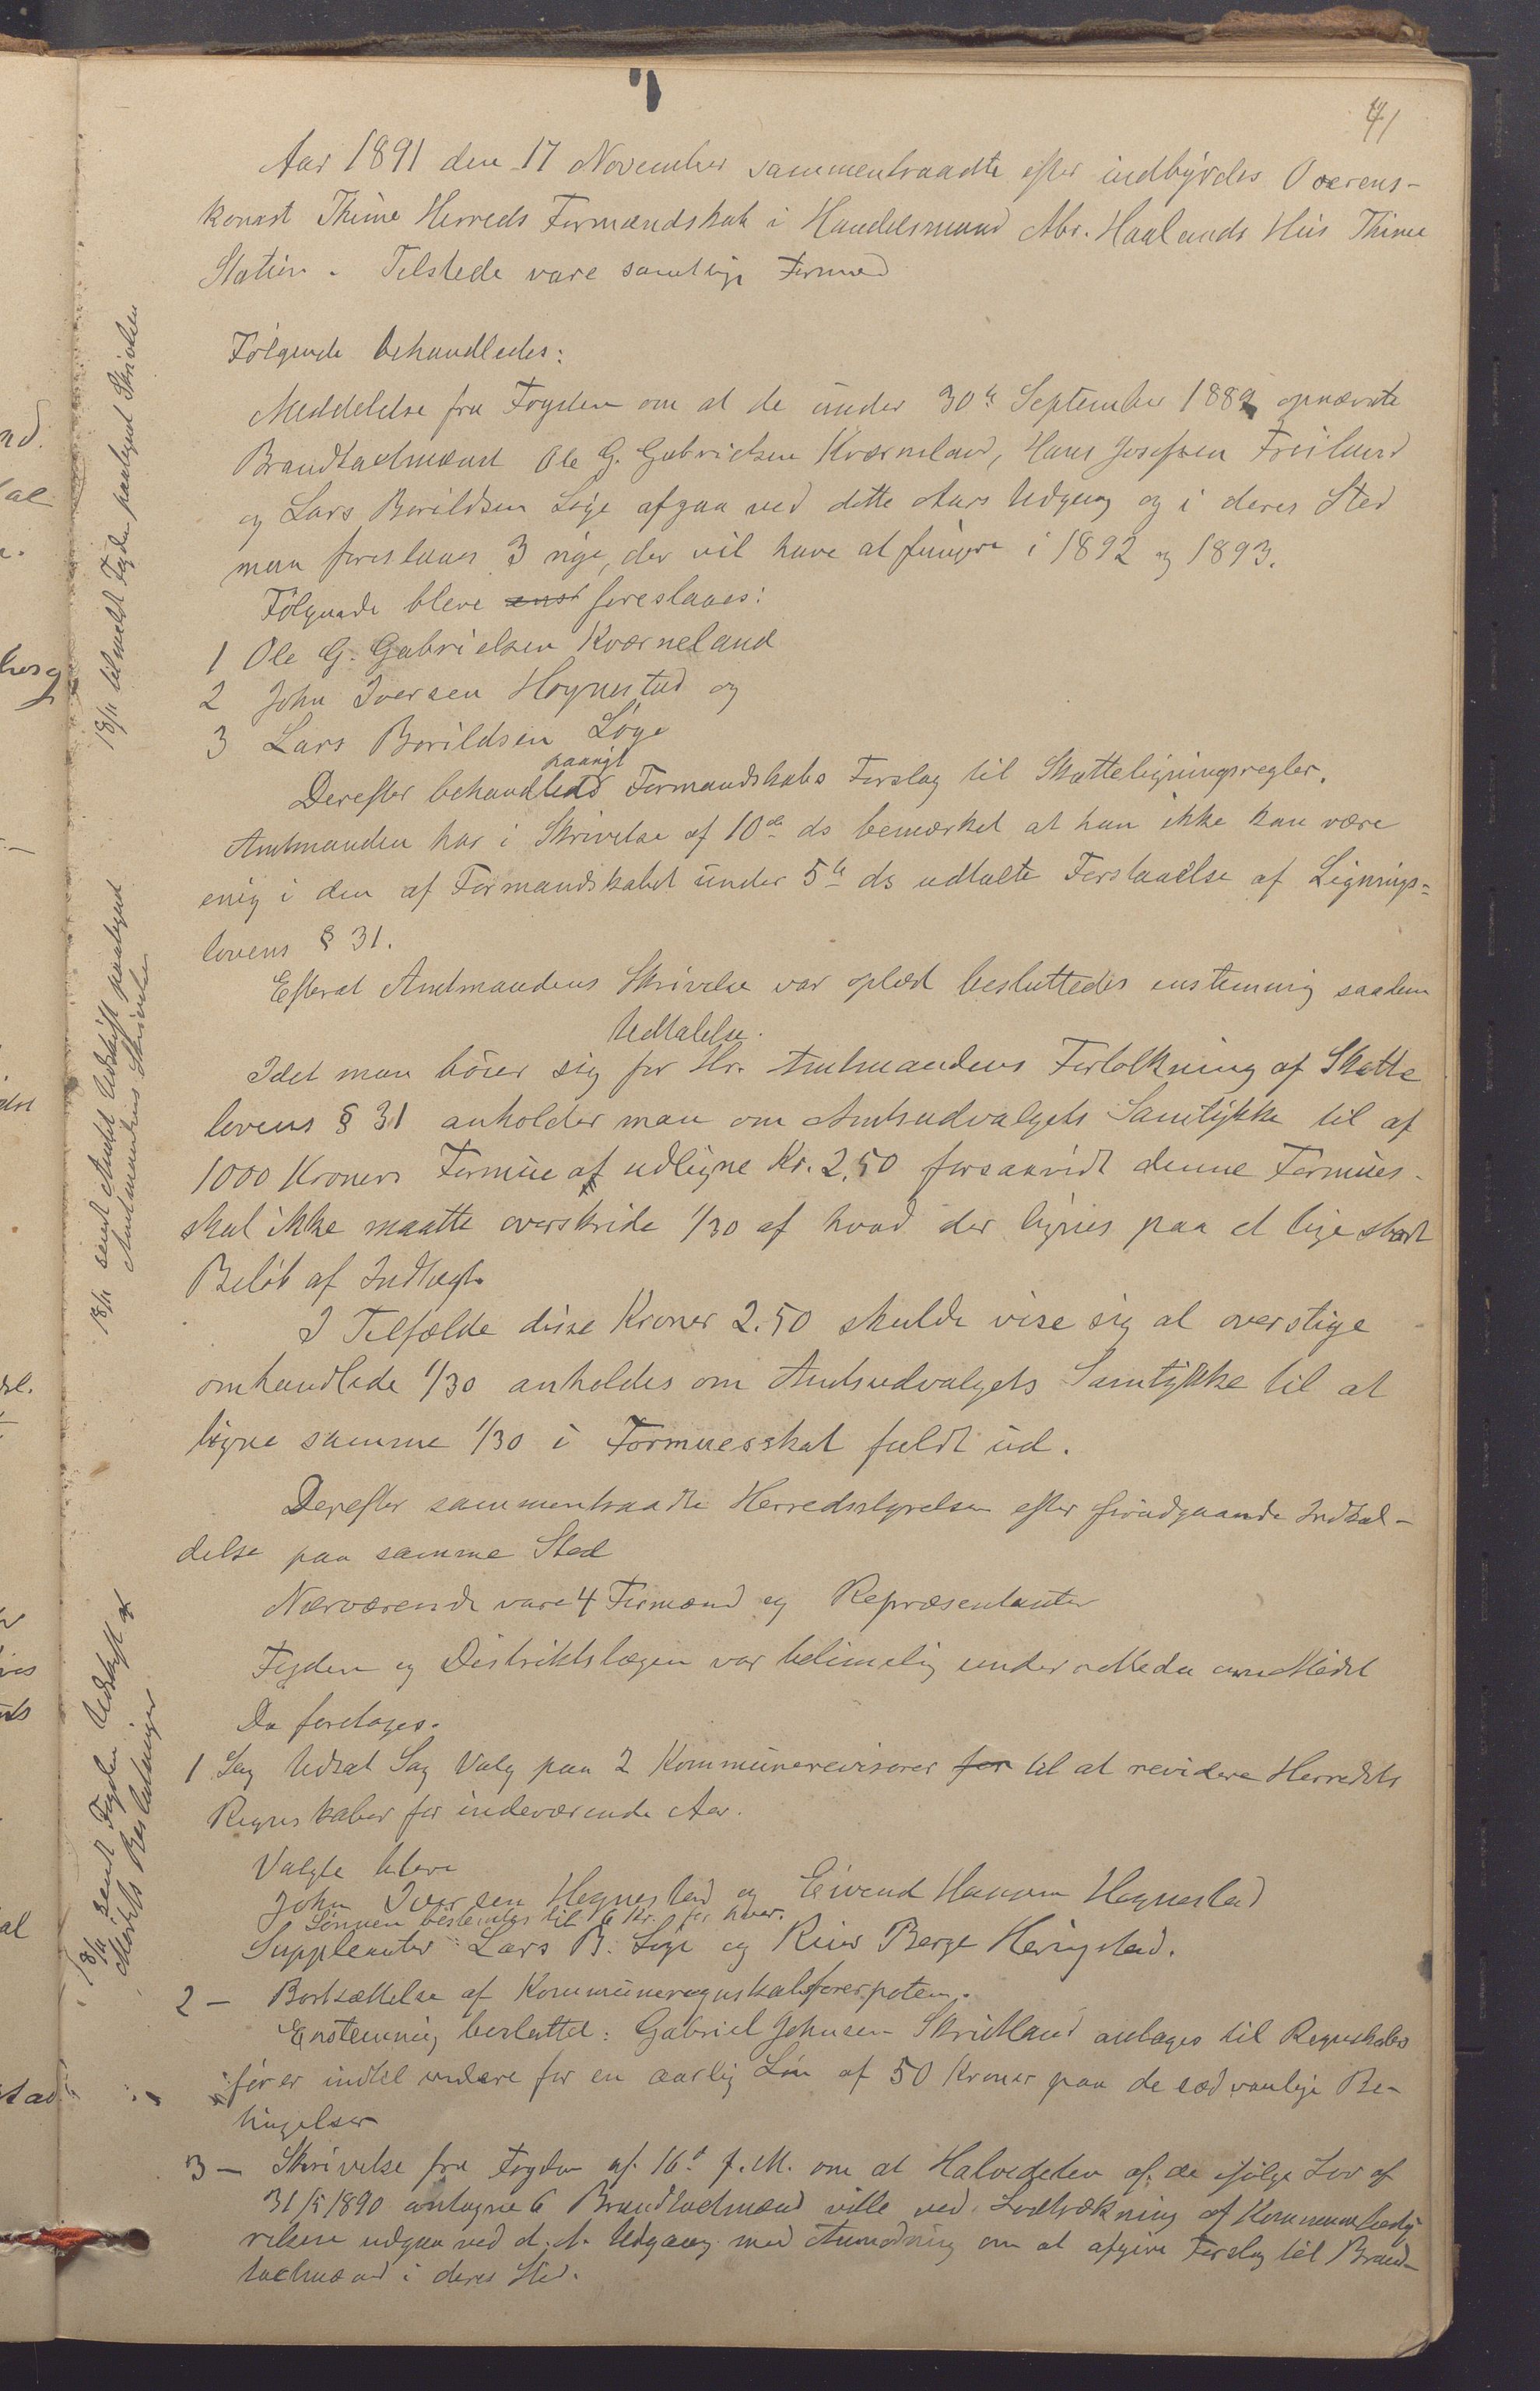 41
Aar 1891 den 17 November sammentraadte efter indbyrdes Overens-
komst Thime Herreds Formandskab i Handelsmand Abr. Haalands Hus Thime
Station. Tilstede vare samtlige Formænd
Følgende behandledes:
Meddelelse fra Fogden om at de under 30te September 1889 opnævnte
Brandtaxtmænd Ole G. Gabrielsen Kværneland, Hans Josefsen Frøiland
og Lars Borildsen Lÿge afgaa ved dette Aars Udgang og i deres Sted
maa foreslaaes 3 nÿe, der vil have at fungere i 1892 og 1893.
Følgende bleve enst foreslaaes:
1 Ole G. Gabrielsen Kværneland
2 John Iversen Hognestad og
3 Lars Borildsen Lÿge
Derefter behandledes paanÿt Formandskabs Forslag til Skatteligningsregler.
Amtmanden har i Skrivelse af 10de ds bemærket at han ikke kan være
enig i den af Formandskabet under 5te ds udtalte Forstaaelse af Lignings=
lovens § 31.
Efterat Amtmandens Skrivelse var oplæst besluttedes enstemmig saadan
Udtalelse.
Idet man bøier sig for Hr. Amtmandens Fortolkning af Skatte
lovens § 31 anholder man om Amtsudvalgets Samtÿkke til af
1000 Kroners Formue at udligne Kr. 2,50 forsaavidt denne Formues-
skat ikke maatte overskride 1/30 af hvad der lignes paa et lige stort
Beløb af Indtægt.
I Tilfælde disse Kroner 2.50 skulde vise sig at overstige
omhandlede 1/30 anholdes om Amtsudvalgets Samtÿkke til at
ligne samme 1/30 i Formuesskat fuldt ud.
Derefter sammentraadte Herredsstyrelsen efter forudgaaende Indkal-
delse paa samme Sted
Nærværende vare 4 Formænd og Repræsentanter
Fogden og Distriktslægen var betimelig underrettede om Mødet
Da foretoges.
1 Sag Udsat Sag Valg paa 2 Kommunerevisorer for til at revidere Herredets
Regnskaber for indeværende Aar.
Valgte bleve
John Iversen Hognestad og Eivend Hansen Hognestad
Lønnen bestemtes til 6 Kr. for hver.
Supplenter: Lars B. Lÿge og Rier Berge Héngstad.
2 - Bortsættelse af Kommuneregnskabsførerposten.
Enstemmig besluttet: Gabriel Johnsen Skrudland antages til Regnskabs
fører indtil videre for en aarlig Løn af 50 Kroner paa de sædvanlige Be-
tingelser
3 - Skrivelse fra Fogden af 16d f.M. om at Halvedelen af de ifølge Lov af
31/5 1890 antagne 6 Brandtaxtmænd ville ved Lodtrækning af Kommunebesty
relsen udgaa ved d. A. Udgang med Anmodning om at afgive Forslag til Brand-
taxtmænd i deres Sted.
18/11 tilmeldt Fogden paategnet Skrivelsen
18/11 sendt Amtet Udskrift paategnet
Amtmandens Skrivelse
18/11 sendt Fogden Udskrift af
Mødets Beslutninger